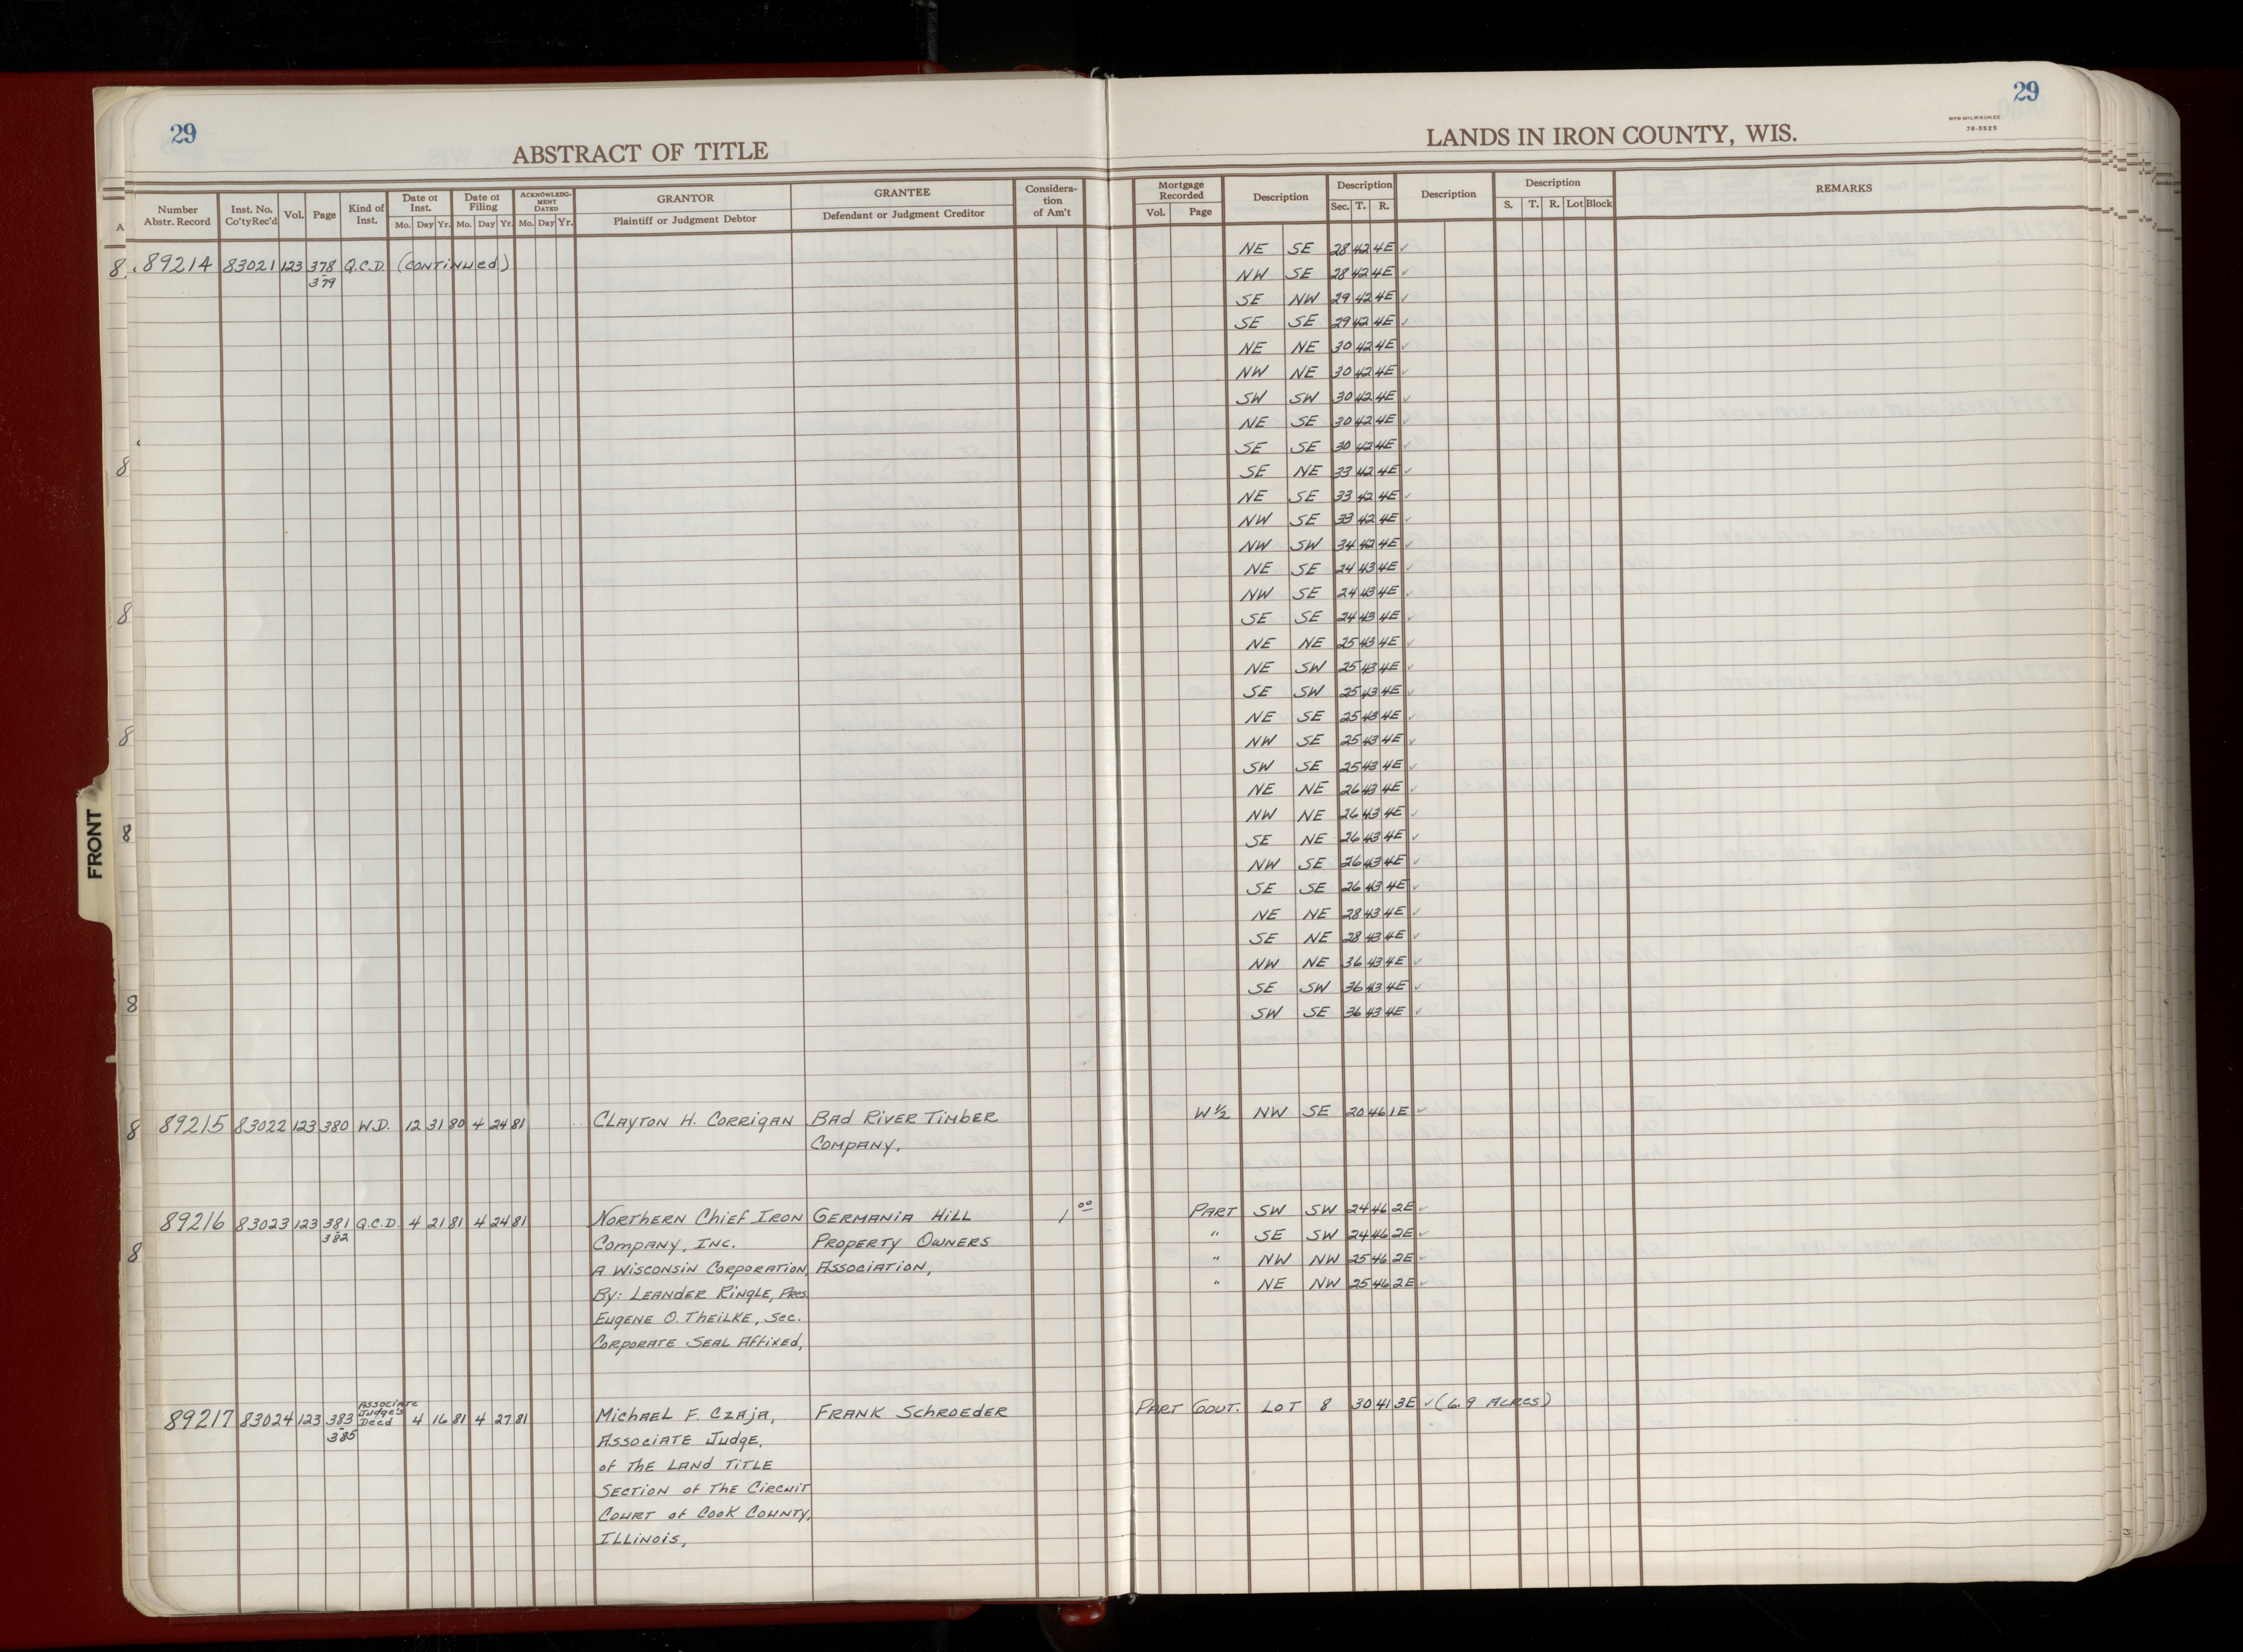 29
29
WPB-MILWAUKEE
78-3525
ABSTRACT OF TITLE
LANDS IN IRON COUNTY, WIS.
Number Abstr. Record
Inst. No. Co'tyRec'd
Vol.
Page
Kind of Inst.
Date of Inst.
Mo. Day Yr.
Date of Filing
Mo. Day Yr.
ACKNOWLEDGMENT DATED
Mo. Day Yr.
GRANTOR
Plaintiff or Judgment Debtor
GRANTEE
Defendant or Judgment Creditor
Considera-
tion
of Am't
Mortgage Recorded
Vol. Page
Description
Description
Sec. T. R.
Description
Description
S. T. R. Lot Block
REMARKS
89214 83021 123 378 Q.C.D. (CONTINUED)
379
NE SE 28 42 4E ✓
NW SE 28 42 4E ✓
SE NW 29 42 4E ✓
SE SE 29 42 4E ✓
NE NE 30 42 4E ✓
NW NE 30 42 4E ✓
SW SW 30 42 4E ✓
NE SE 30 42 4E ✓
SE SE 30 42 4E ✓
SE NE 33 42 4E ✓
NE SE 33 42 4E ✓
NW SE 33 42 4E ✓
NW SW 34 42 4E ✓
NE SE 24 43 4E ✓
NW SE 24 43 4E ✓
SE SE 24 43 4E ✓
NE NE 25 43 4E ✓
NE SW 25 43 4E ✓
SE SW 25 43 4E ✓
NE SE 25 43 4E ✓
NW SE 25 43 4E ✓
SW SE 25 43 4E ✓
NE NE 26 43 4E ✓
NW NE 26 43 4E ✓
SE NE 26 43 4E ✓
NW SE 26 43 4E ✓
SE SE 26 43 4E ✓
NE NE 28 43 4E ✓
SE NE 28 43 4E ✓
NW NE 36 43 4E ✓
SE SW 36 43 4E ✓
SW SE 36 43 4E ✓
89215 83022 123 380 W.D. 12 31 80 4 24 81 CLAYTON H. CORRIGAN BAD RIVER TIMBER W½ NW SE 20 46 1E ✓
COMPANY,
89216 83023 123 381 Q.C.D. 4 21 81 4 24 81 NORTHERN CHIEF IRON GERMANIA HILL 1 00 PART SW SW 24 46 2E ✓
382 COMPANY, INC. PROPERTY OWNERS " SE SW 24 46 2E ✓
A WISCONSIN CORPORATION, ASSOCIATION, " NW NW 25 46 2E ✓
BY: LEANDER RINGLE, PRES. " NE NW 25 46 2E ✓
EUGENE O. THEILKE, SEC.
CORPORATE SEAL AFFIXED,
89217 83024 123 383 ASSOCIATE JUDGE'S DEED 4 16 81 4 27 81 MICHAEL F. CZAJA, FRANK SCHROEDER PART GOUT. LOT 8 30 41 3E ✓ (6.9 ACRES)
385 ASSOCIATE JUDGE,
OF THE LAND TITLE
SECTION OF THE CIRCUIT
COURT OF COOK COUNTY,
ILLINOIS,
FRONT